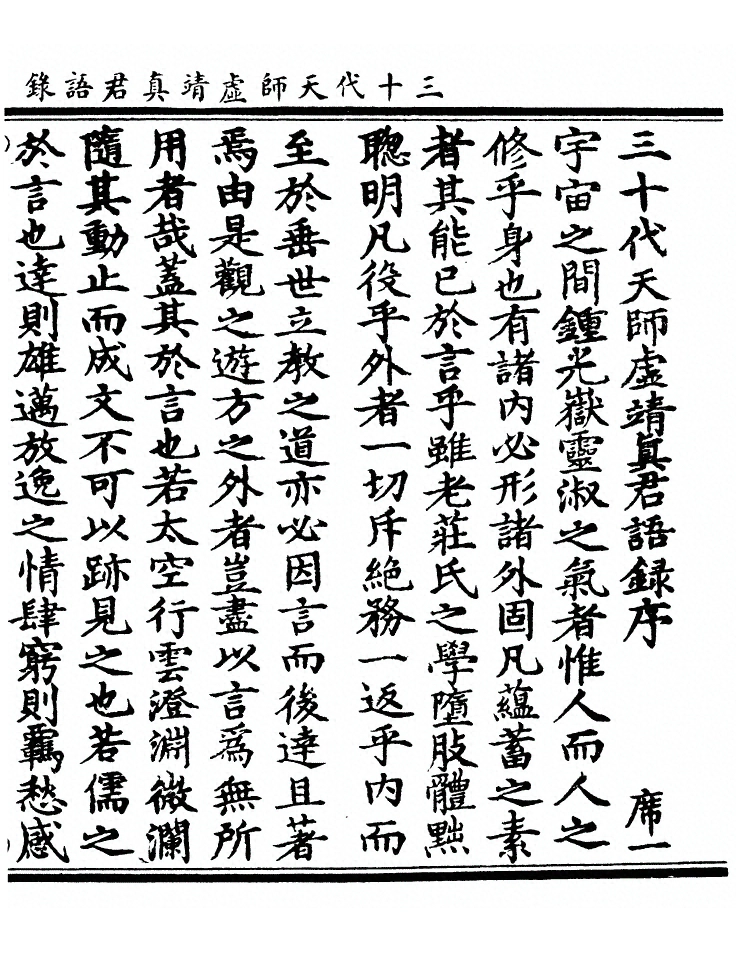 三十代天師虛靖真君語錄
三十代天師虛靖眞君語録序 席一
宇宙之間鍾光嶽靈淑之氣者惟人而人之
修乎身也有諸内必形諸外固凡蘊蓄之素
者其能已於言乎雖老莊氏之學墮肢體黜
聰明凡役乎外者一切斥絶務一返乎内而
至於垂世立教之道亦必因言而後達且著
焉由是觀之遊方之外者豈盡以言爲無所
用者哉蓋其於言也若太空行雲澄淵微瀾
隨其動止而成文不可以跡見之也若儒之
於言也達則雄邁放逸之情肆窮則羈愁感